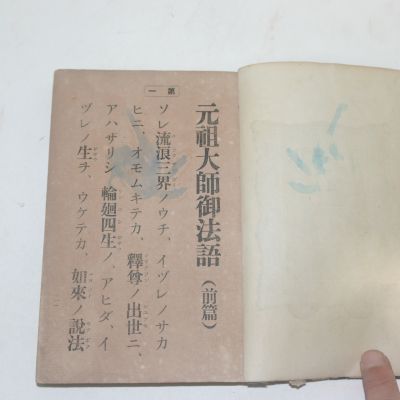 元祖大師御法語(前篇)
第一
ソレ流浪三界ノウチ、イヅレノサカ
ヒニ、オモムキテカ、釋尊ノ出世ニ、
アハサリシ輪廻四生ノ、アヒダ、イ
ヅレノ生ヲ、ウケテカ、如來ノ說法